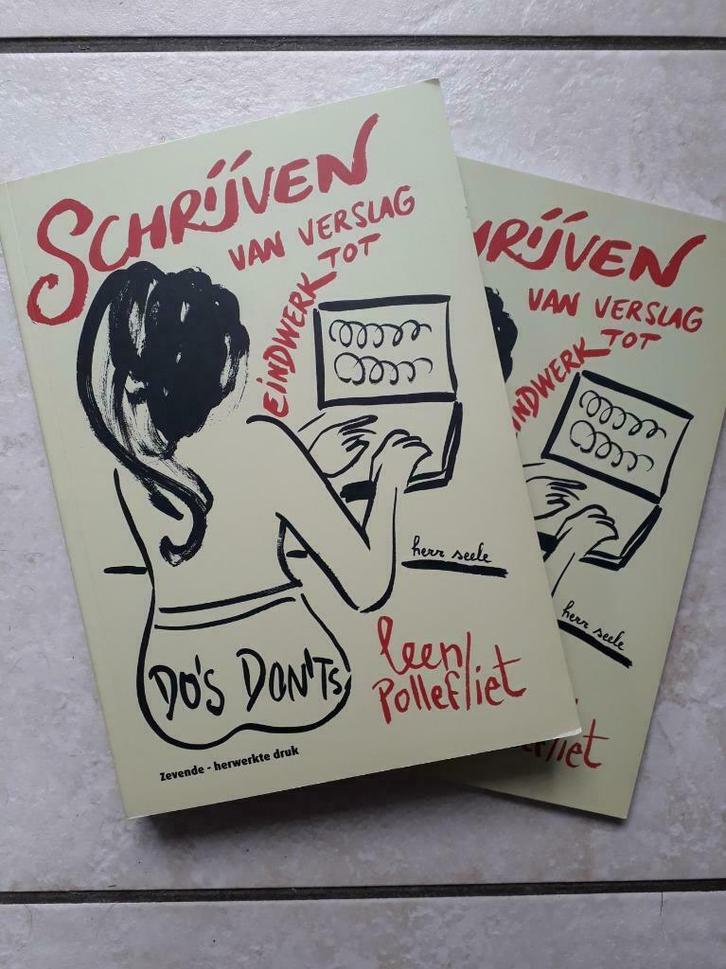 SCHRIJVEN
VAN VERSLAG
TOT
EINDWERK
herr seele
DO'S DON'TS
leen
Pollefliet
Zevende - herwerkte druk
VAN VERSLAG
TOT
herr seele